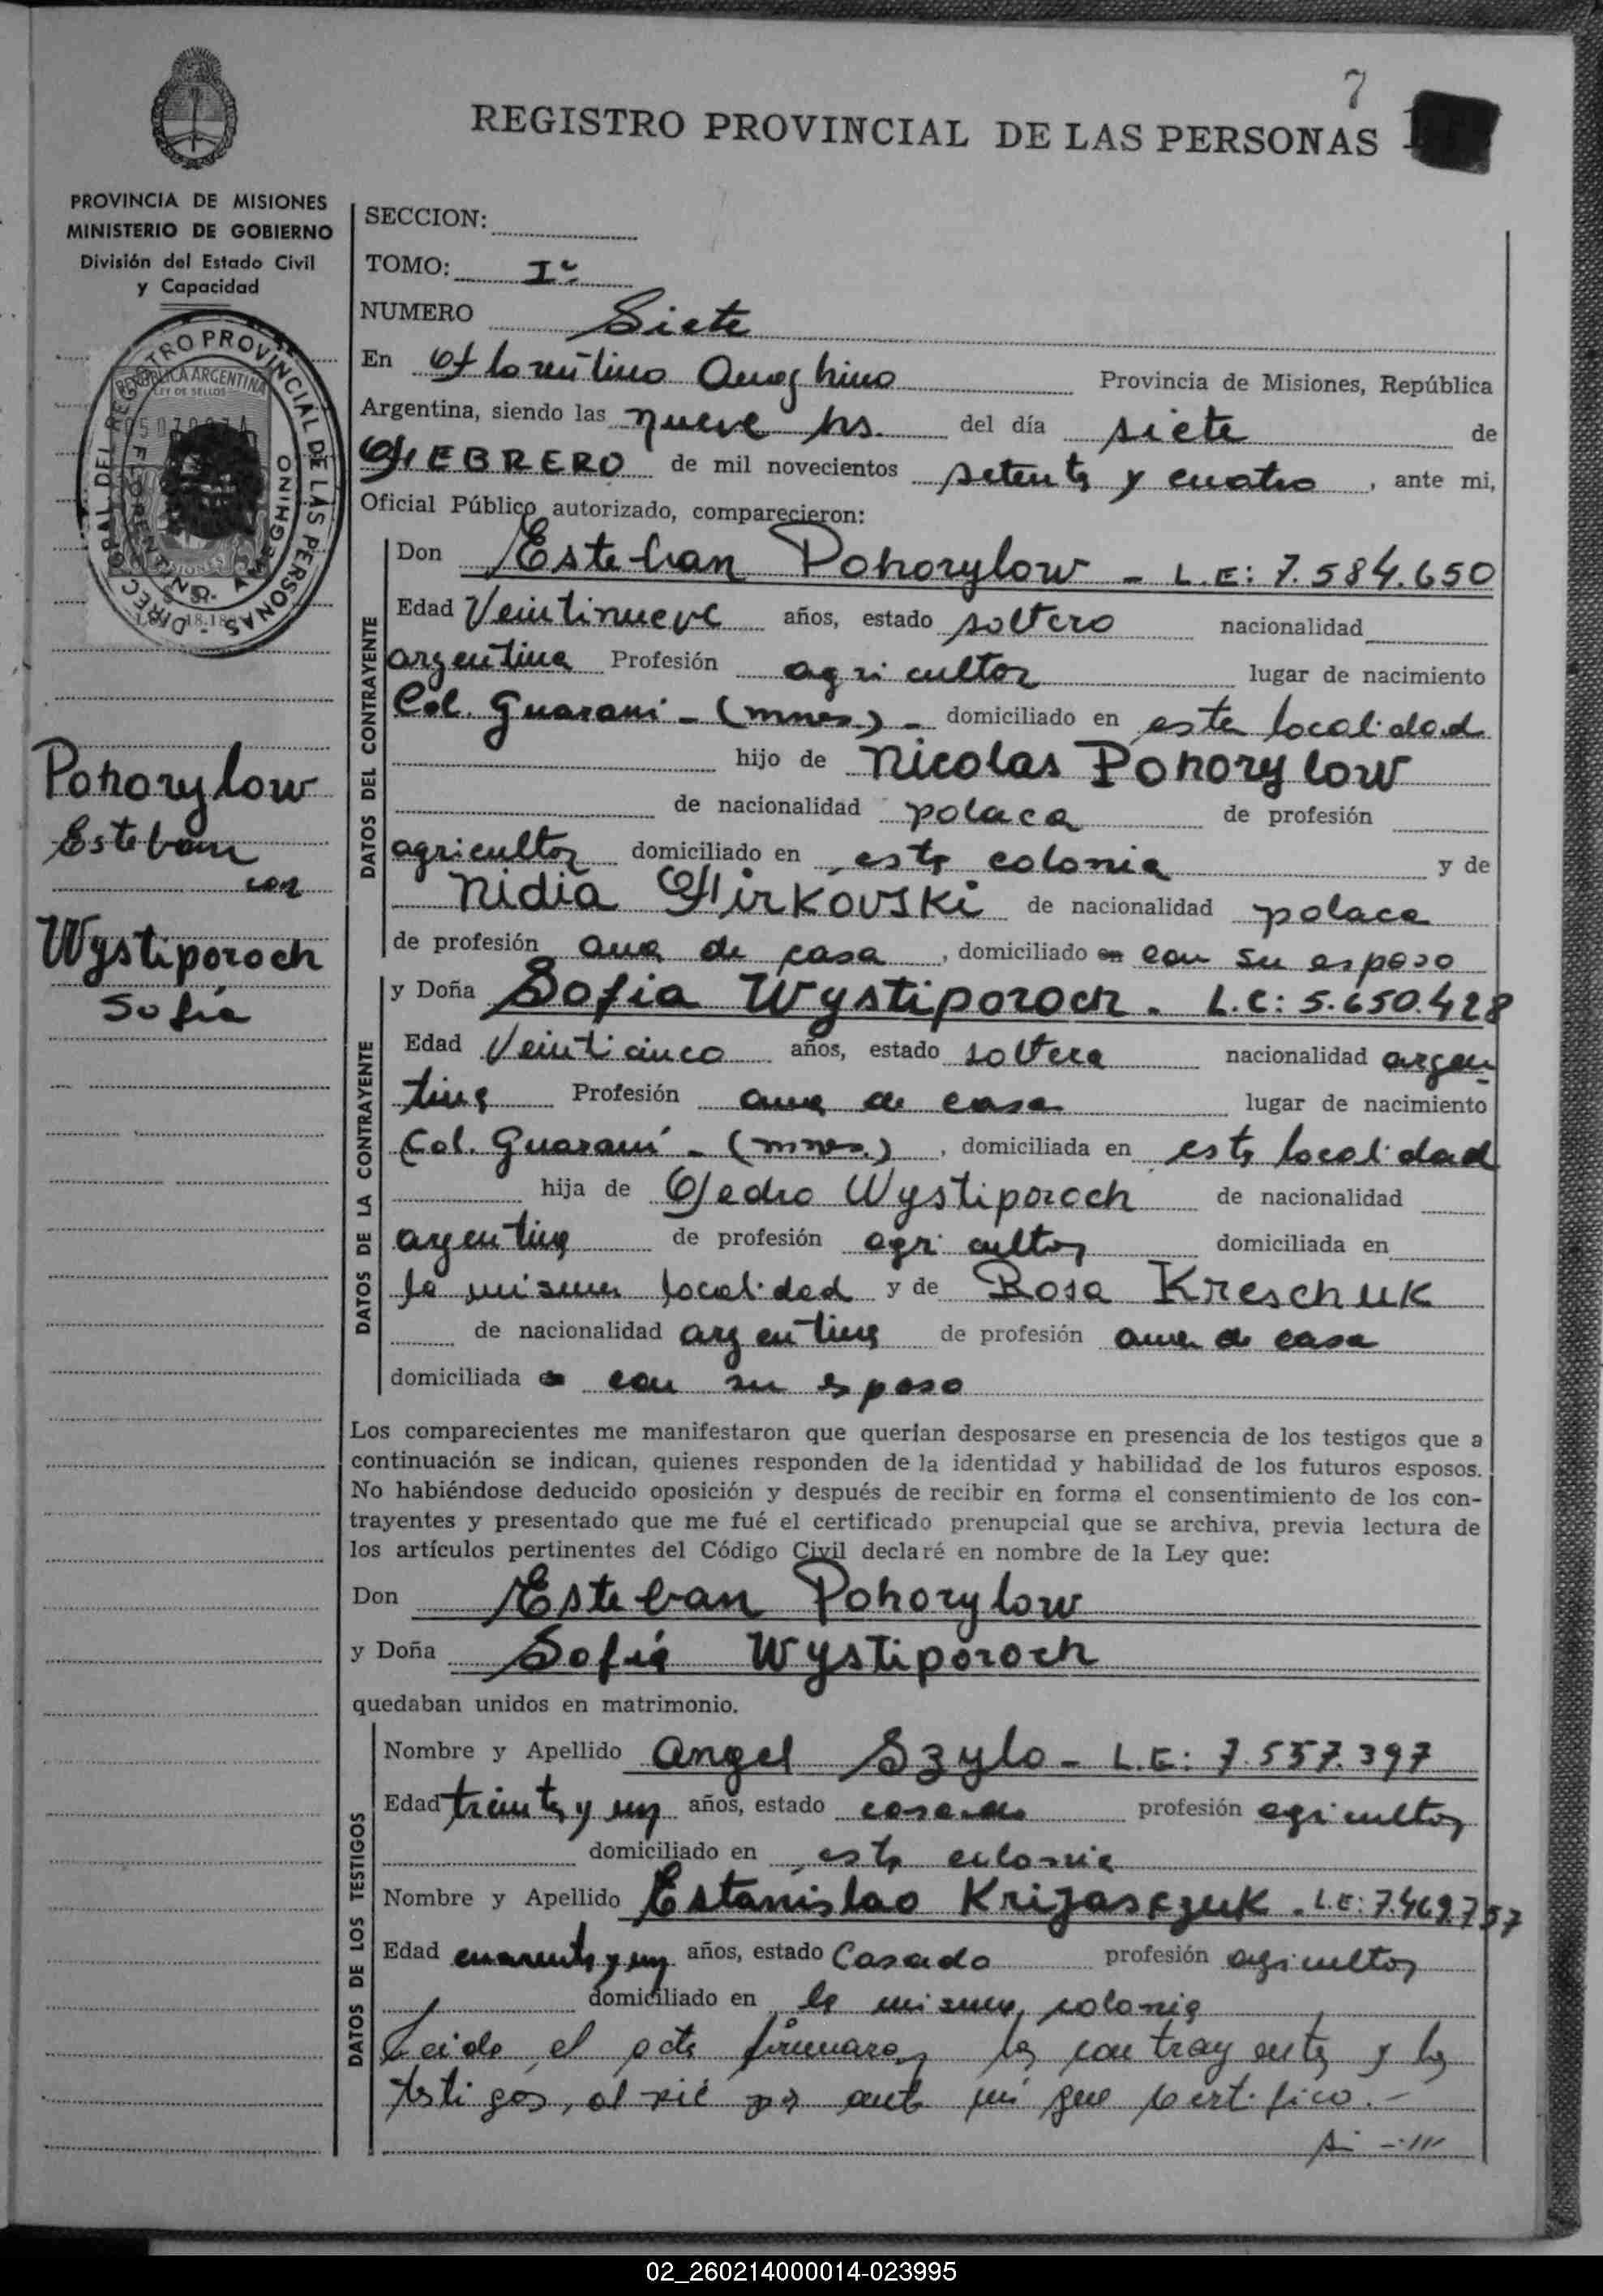 7
REGISTRO PROVINCIAL DE LAS PERSONAS
PROVINCIA DE MISIONES
MINISTERIO DE GOBIERNO
División del Estado Civil
y Capacidad
DIREC PAL DEL REGISTRO PROVINCIAL DE LAS PERSONAS
REPUBLICA ARGENTINA
LEY DE SELLOS
MISIONES
Pohorylow
Esteban
con
Wystiporoch
Sofia
SECCION:
TOMO: Iº
NUMERO Siete
En Florentino Ameghino Provincia de Misiones, República
Argentina, siendo las nueve hs. del día siete de
FEBRERO de mil novecientos setenta y cuatro, ante mi,
Oficial Público autorizado, comparecieron:
DATOS DEL CONTRAYENTE
Don Esteban Pohorylow - L.E: 7.584.650
Edad Veintinueve años, estado soltero nacionalidad
argentina Profesión agricultor lugar de nacimiento
Col. Guarani - (mnes.) - domiciliado en esta localidad
hijo de Nicolas Pohorylow
de nacionalidad polaca de profesión
agricultor domiciliado en esta colonia y de
Nidia Firkovski de nacionalidad polaca
de profesión ama de casa, domiciliado en con su esposo
DATOS DE LA CONTRAYENTE
y Doña Sofia Wystiporoch. L.C: 5.650.428
Edad Veinticinco años, estado soltera nacionalidad argen
tina Profesión ama de casa lugar de nacimiento
Col. Guaraní - (mnes.), domiciliada en esta localidad
hija de Pedro Wystiporoch de nacionalidad
argentina de profesión agricultor domiciliada en
la misma localidad y de Rosa Kreschuk
de nacionalidad argentina de profesión ama de casa
domiciliada con su esposo
Los comparecientes me manifestaron que querían desposarse en presencia de los testigos que a
continuación se indican, quienes responden de la identidad y habilidad de los futuros esposos.
No habiéndose deducido oposición y después de recibir en forma el consentimiento de los con-
trayentes y presentado que me fué el certificado prenupcial que se archiva, previa lectura de
los artículos pertinentes del Código Civil declaré en nombre de la Ley que:
Don Esteban Pohorylow
y Doña Sofia Wystiporoch
quedaban unidos en matrimonio.
DATOS DE LOS TESTIGOS
Nombre y Apellido Angel Szylo - L.E: 7.557.397
Edad treinta y un años, estado casado profesión agricultor
domiciliado en esta colonia
Nombre y Apellido Estanislao Krijasczuk. L.E: 7.469.757
Edad cuarenta y un años, estado Casado profesión agricultor
domiciliado en la misma colonia
Leida el acta firmaron los contrayentes y los
testigos, al pié por ante mi que certifico.-
02_260214000014-023995